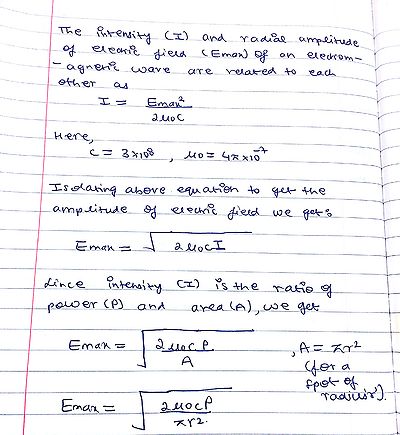 The intensity (I) and radial amplitude
of electric field (Emax) of an electrom-
-agnetic wave are related to each
other as
I = Emax²/2μ0C
Here,
C = 3×10⁸ , μ0 = 4π×10⁻⁷
Isolating above equation to get the
amplitude of electric field we get:
Emax = √(2μ0CI)
Since intensity (I) is the ratio of
power (P) and area (A), we get
Emax = √(2μ0CP/A) , A = πr²
(for a
spot of
radius r).
Emax = √(2μ0CP/πr²)